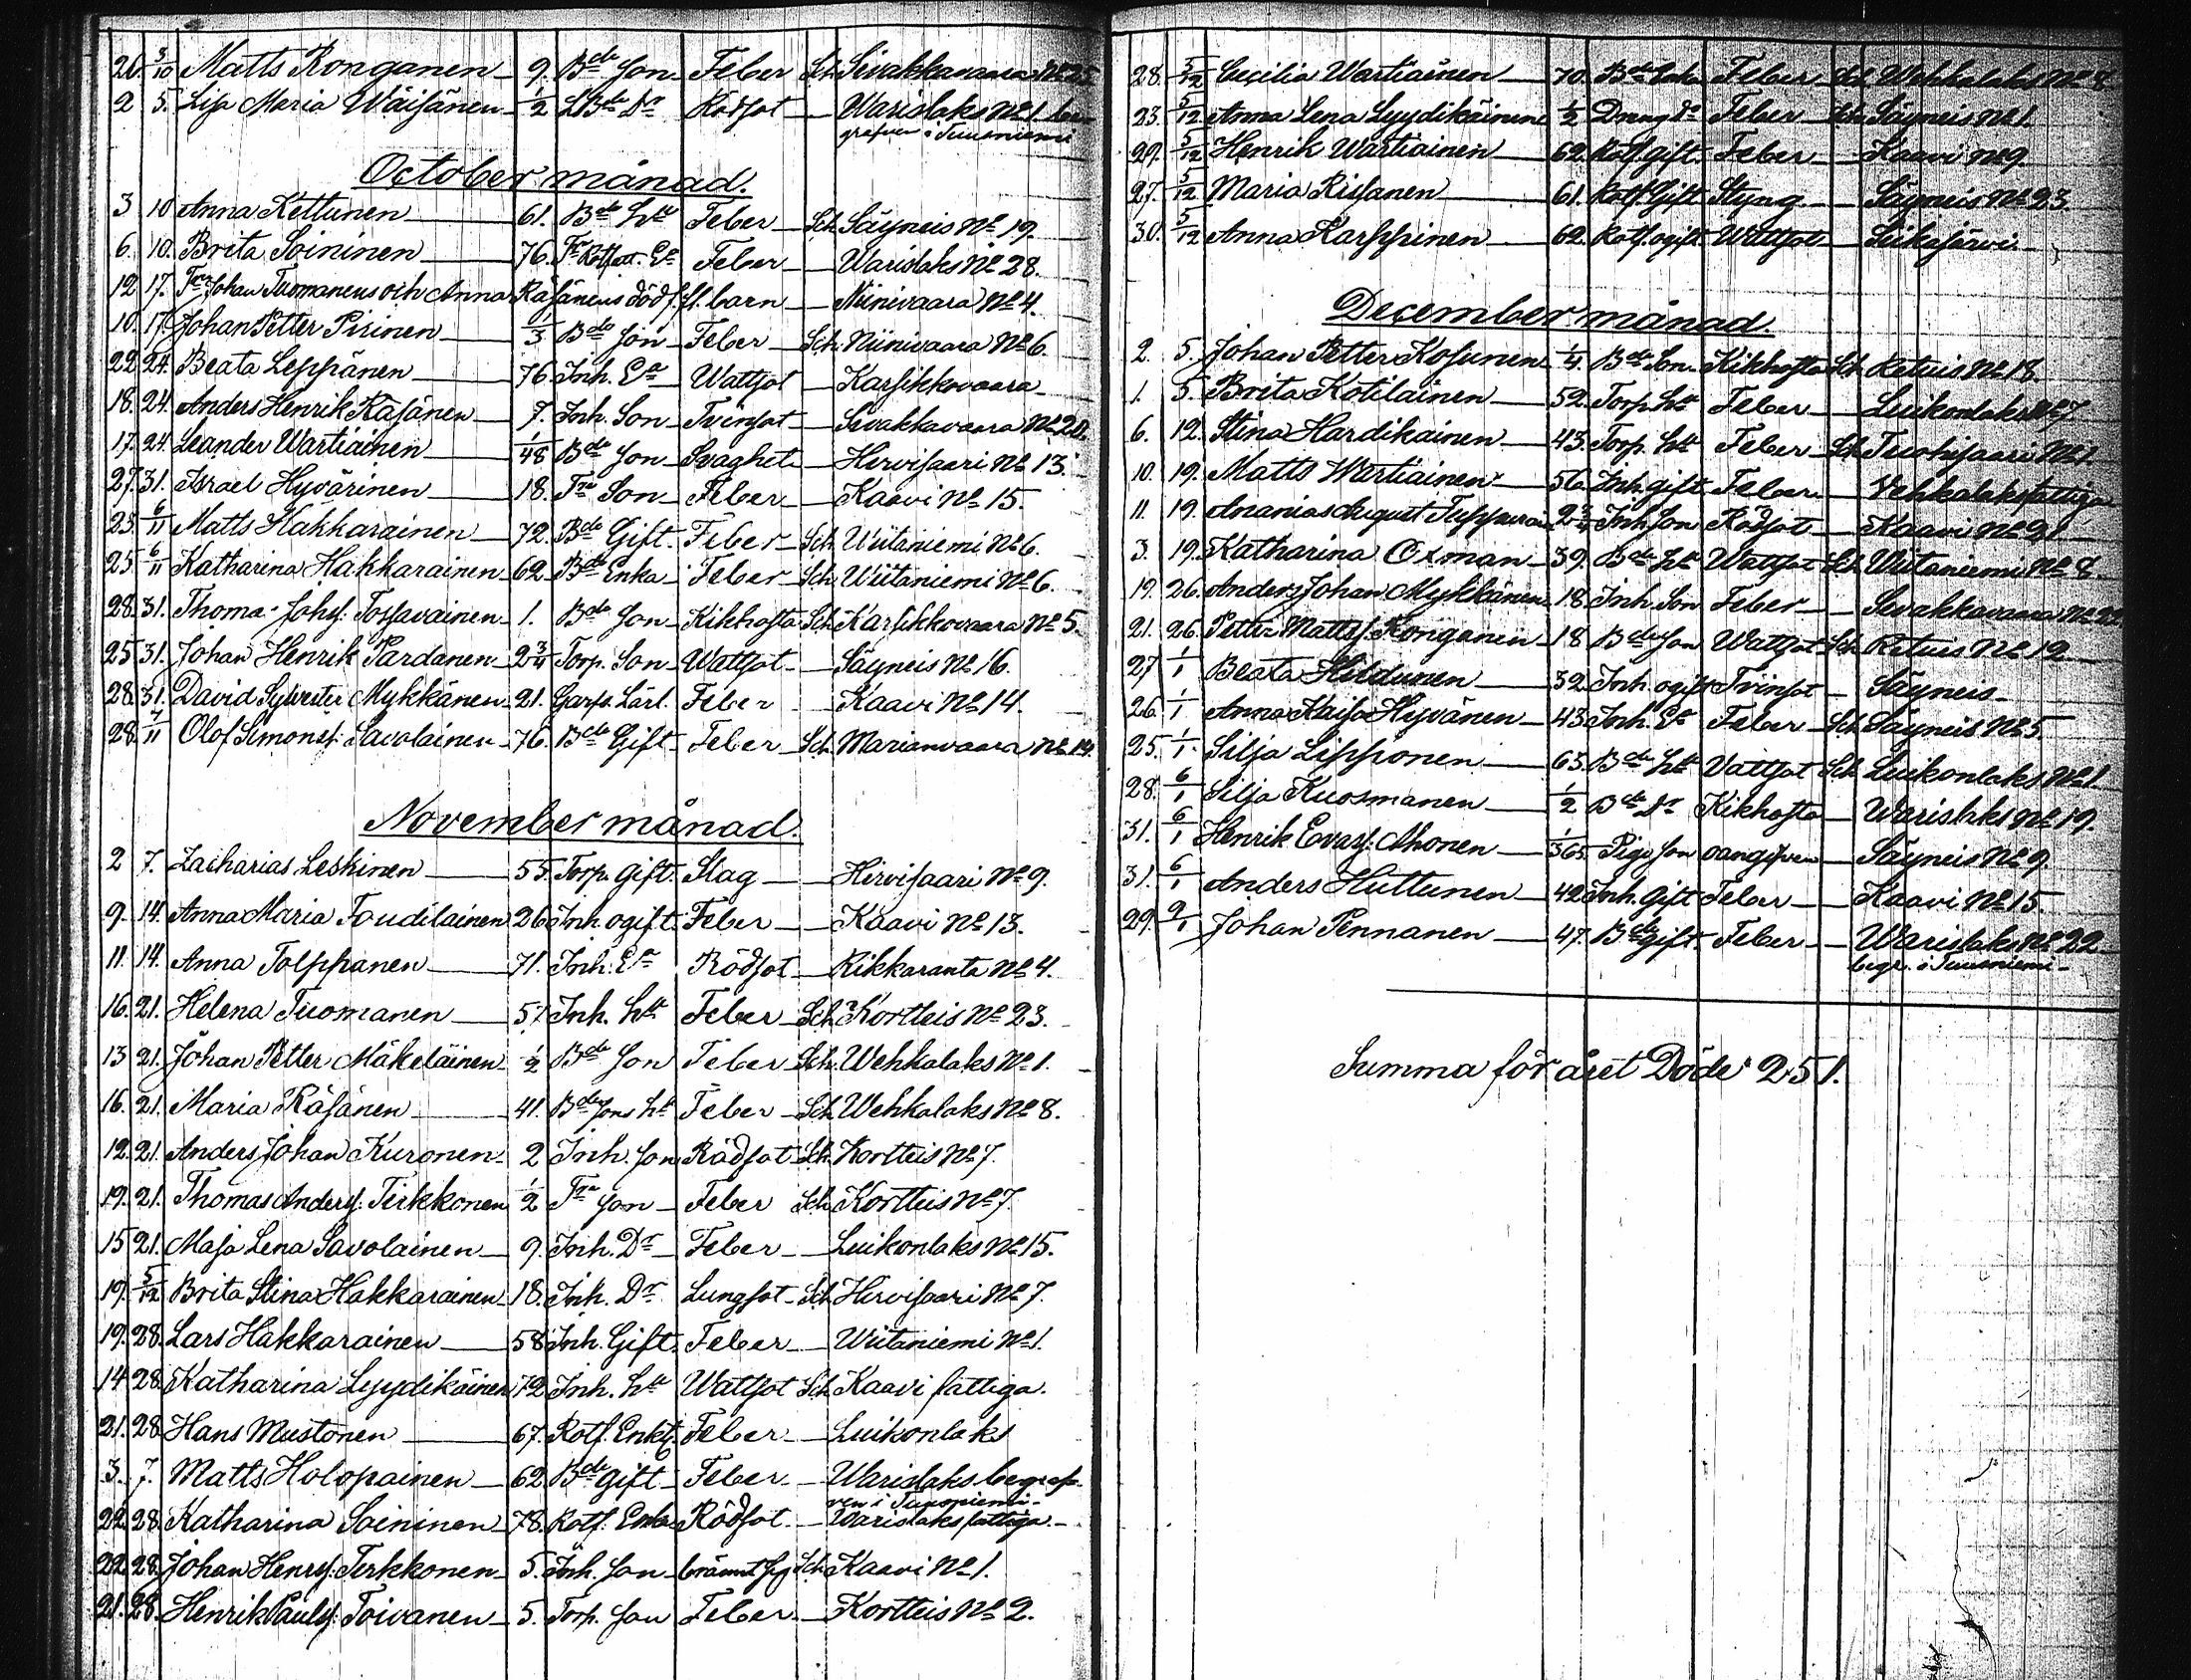 26. 3/10 Matts Konganen 9. Bde Son Feber Sch. Sivakkavaara No 25
2 5. Lisa Maria Wäisänen 1/2 Bde Dr Rödsot Warislaks No 1 be-
grafven i Tuusniemi
October månad.
3 10 Anna Kettunen 61. Bde Hu Feber Sch. Säyneis No 19.
6. 10. Brita Soininen 76. Feber Warislaks No 28.
12 17. Johan Tuomanens och Anna Räsänens dödf. fl. barn Niinivaara No 4.
10. 17. Johan Petter Pirinen 1/3 Bde Son Feber Sch. Niinivaara No 6.
22 24. Beata Leppänen 76. Inh. Ea Wattsot Karsikkovaara
18. 24. Anders Henrik Räsänen 7. Inh. Son Tvinsot Sivakkavaara No 20.
17. 24. Leander Wartiainen 1/48 Bde Son Svaghet Hirvisaari No 13.
27. 31. Israel Hyvärinen 18. Tre Son Feber Kaavi No 15.
25. 6/11 Matts Hakkarainen 72. Bde Gift. Feber Sch. Wiitaniemi No 6.
25 6/11 Katharina Hakkarainen 62 Bde Enka Feber Sch. Wiitaniemi No 6.
28. 31. Thoma Johs: Tossavainen 1. Bde Son Kikhosta Sch. Karsikkovaara No 5.
25 31. Johan Henrik Pardanen 2 3/4 Torp. Son Wattsot Säyneis No 16.
28. 31. David Sylvester Mykkänen 21. Garfv. Lärl. Feber Kaavi No 14.
28. 7/11 Olof Simonss: Savolainen 76. Bde Gift Feber Sch. Marianvaara No 14.
November månad.
2 7. Zacharias Leskinen 55. Torp. gift. Slag Hirvisaari No 9.
9. 14. Anna Maria Toudilainen 26 Inh. ogift Feber Kaavi No 13.
11. 14. Anna Tolppanen 71. Inh. Ea Rödsot Rikkaranta No 4.
16. 21. Helena Tuomanen 57 Inh. Hu Feber Sch. Kortteis No 23.
13 21. Johan Petter Mäkeläinen 1/2 Bde Son Feber Sch. Wehkalaks No 1.
16. 21. Maria Räsänen 41. Bde Sons Hu Feber Sch. Wehkalaks No 8.
12. 21. Anders Johan Kuronen 2 Inh. Son Rödsot Sch. Kortteis No 7.
19. 21. Thomas Anderss: Tirkkonen 1/2 Tre Son Feber Sch. Kortteis No 7.
15 21. Maja Lena Savolainen 9. Inh. Dr Feber Luikonlaks No 15.
19. 5/12 Brita Stina Hakkarainen 18. Inh. Dr Lungsot Sch. Hirvisaari No 7.
19. 28. Lars Hakkarainen 58 Inh. Gift. Feber Wiitaniemi No 1.
14 28. Katharina Lyydikäinen 72 Inh. Hu Wattsot Sch. Kaavi fattiga.
21. 28. Hans Mustonen 67. Rotf. Enkl. Feber Luikonlaks
3. 7. Matts Holopainen 62. Bde gift Feber Warislaks begraf-
ven i Tuusniemi
22. 28. Katharina Soininen 78. Rotf: Enka Rödsot Warislaks fattiga.
22. 28. Johan Henrs: Tirkkonen 5. Inh. Son brännt sig Sch. Kaavi No 1.
21. 28. Henrik Paulss: Toivanen 5. Torp. Son Feber Kortteis No 2.
28. 5/12 Cecilia Wartiainen 70. Bde Enka Feber Sch. Wehkalaks No 8
23. 5/12 Anna Lena Lyydikäinen 1/2 Dräng Dr Feber Sch. Säyneis No 1.
29. 5/12 Henrik Wartiainen 62. Rotf. gift. Feber Kaavi No 9
27. 5/12 Maria Rissanen 61. Rotf. Gift Styng Säyneis No 23.
30. 5/12 Anna Karppinen 62. Rotf. ogift Wattsot Siikajärvi
December månad.
2. 5. Johan Petter Kosunen 1/4. Bde Son Kikhosta Sch. Retuis No 18.
1. 5. Brita Kotilainen 52. Torp. Hu Feber Luikonlaks No 7
6. 12. Stina Hardikainen 43. Torp. Hu Feber Sch. Tuohisaari No 1.
10. 19. Matts Wartiainen 56. Inh. gift Feber Vehkalaks fattiga
11. 19. Ananias August Tuppurainen 2 3/4 Inh. Son Rödsot Kaavi No 21
3. 19. Katharina Oxman 39. Bde Hu Wattsot Sch. Wiitaniemi No 8
19. 26. Anders Johan Mykkänen 18. Inh. Son Feber Sivakkavaara No 22
21. 26. Petter Mattss: Konganen 18 Bde Son Wattsot Sch. Retuis No 12
27 1/1 Beata Holdunen 32. Inh. ogift Tvinsot Säyneis
26. 1/1 Anna Kaisa Hyvänen 43. Inh. Ea Feber Sch. Säyneis No 5.
25. 1/1 Silja Lipponen 63. Bde Hu Vattsot Sch. Luikonlaks No 1.
28. 6/1 Silja Kuosmanen 1/2 Bde Dr Kikhosta Warislaks No 19.
31. 6/1 Henrik Evars: Ahonen 1/365 Pigo Son oangifven Säyneis No 9.
31. 6/1 Anders Huttunen 42. Inh. Gift Feber Kaavi No 15.
29. 9/1 Johan Pennanen 47. Bde gift. Feber Warislaks No 22
begr. i Tuusniemi
Summa för året Döde: 251.